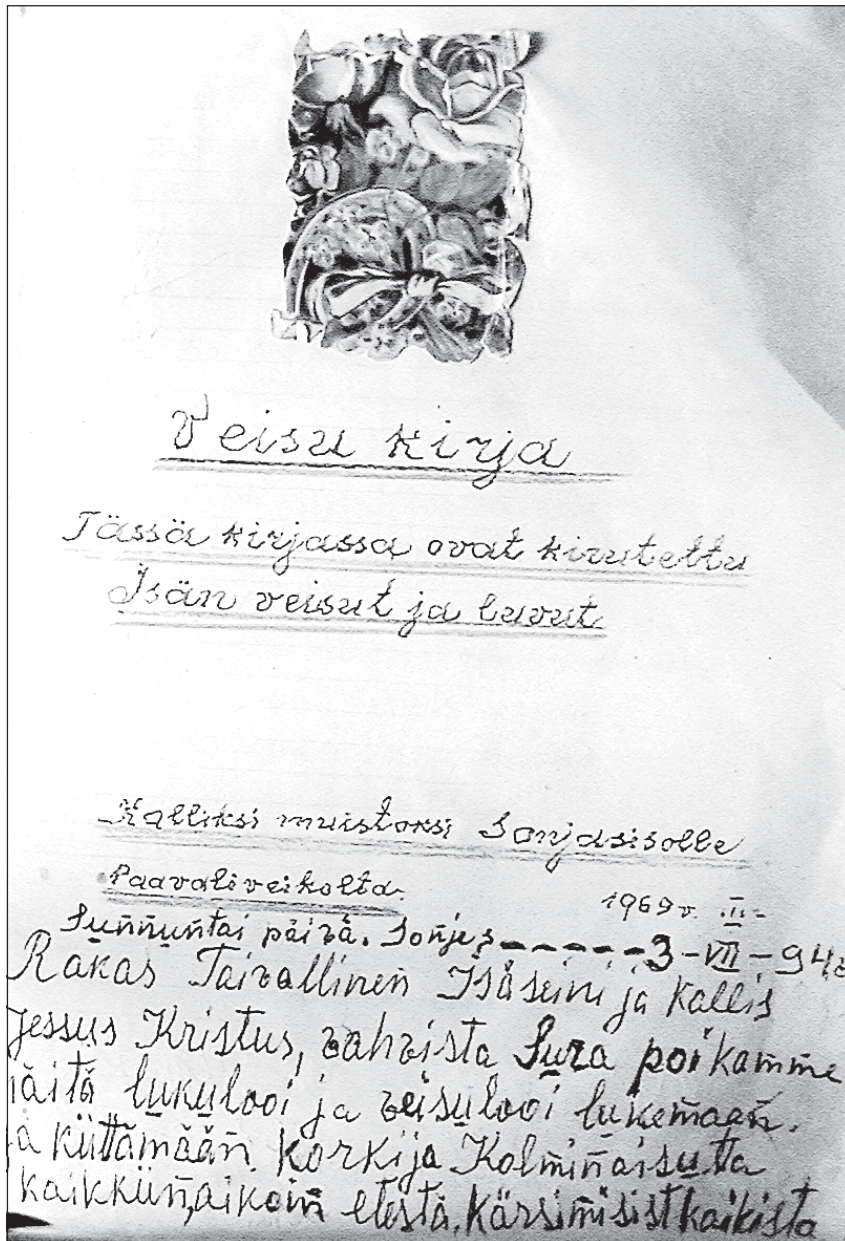 Veisu kirja
Tässä kirjassa ovat kirutettu
Isän veisut ja luvut
Kalliksi muistoksi Sonjasisolle
Paavaliveikolta.
1969 v. III-
Sunnuntai päivä. Sonjes ----- 3-VII-94
Rakas Taivallinen Isäseini ja Kallis
Jessus Kristus, vahvista Sura poikamme
näitä lukulooi ja veisulooi lukemaan.
ja küttämään. Korkija Kolminaisuta
kaikkiin, aikoin etestä, kärsimisist kaikista